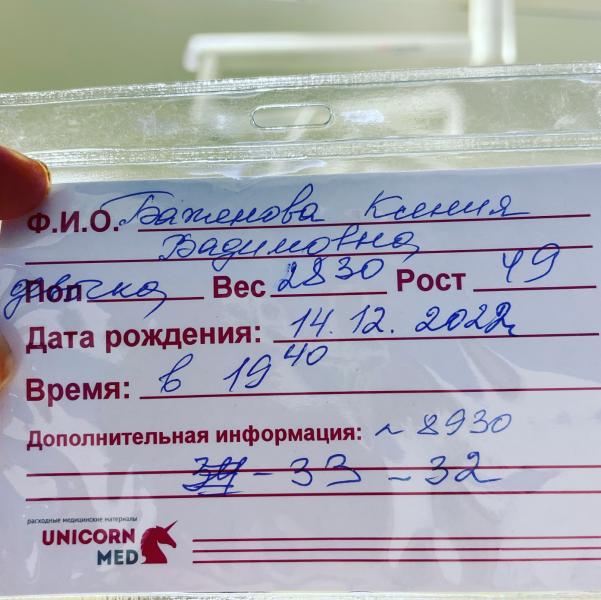 Ф.И.О. Баженова Ксения
Вадимовна
Пол девочка Вес 2830 Рост 49
Дата рождения: 14.12.2022г
Время: в 19 40
Дополнительная информация: ~ 8930
34 - 33 - 32
расходные медицинские материалы
UNICORN
MED